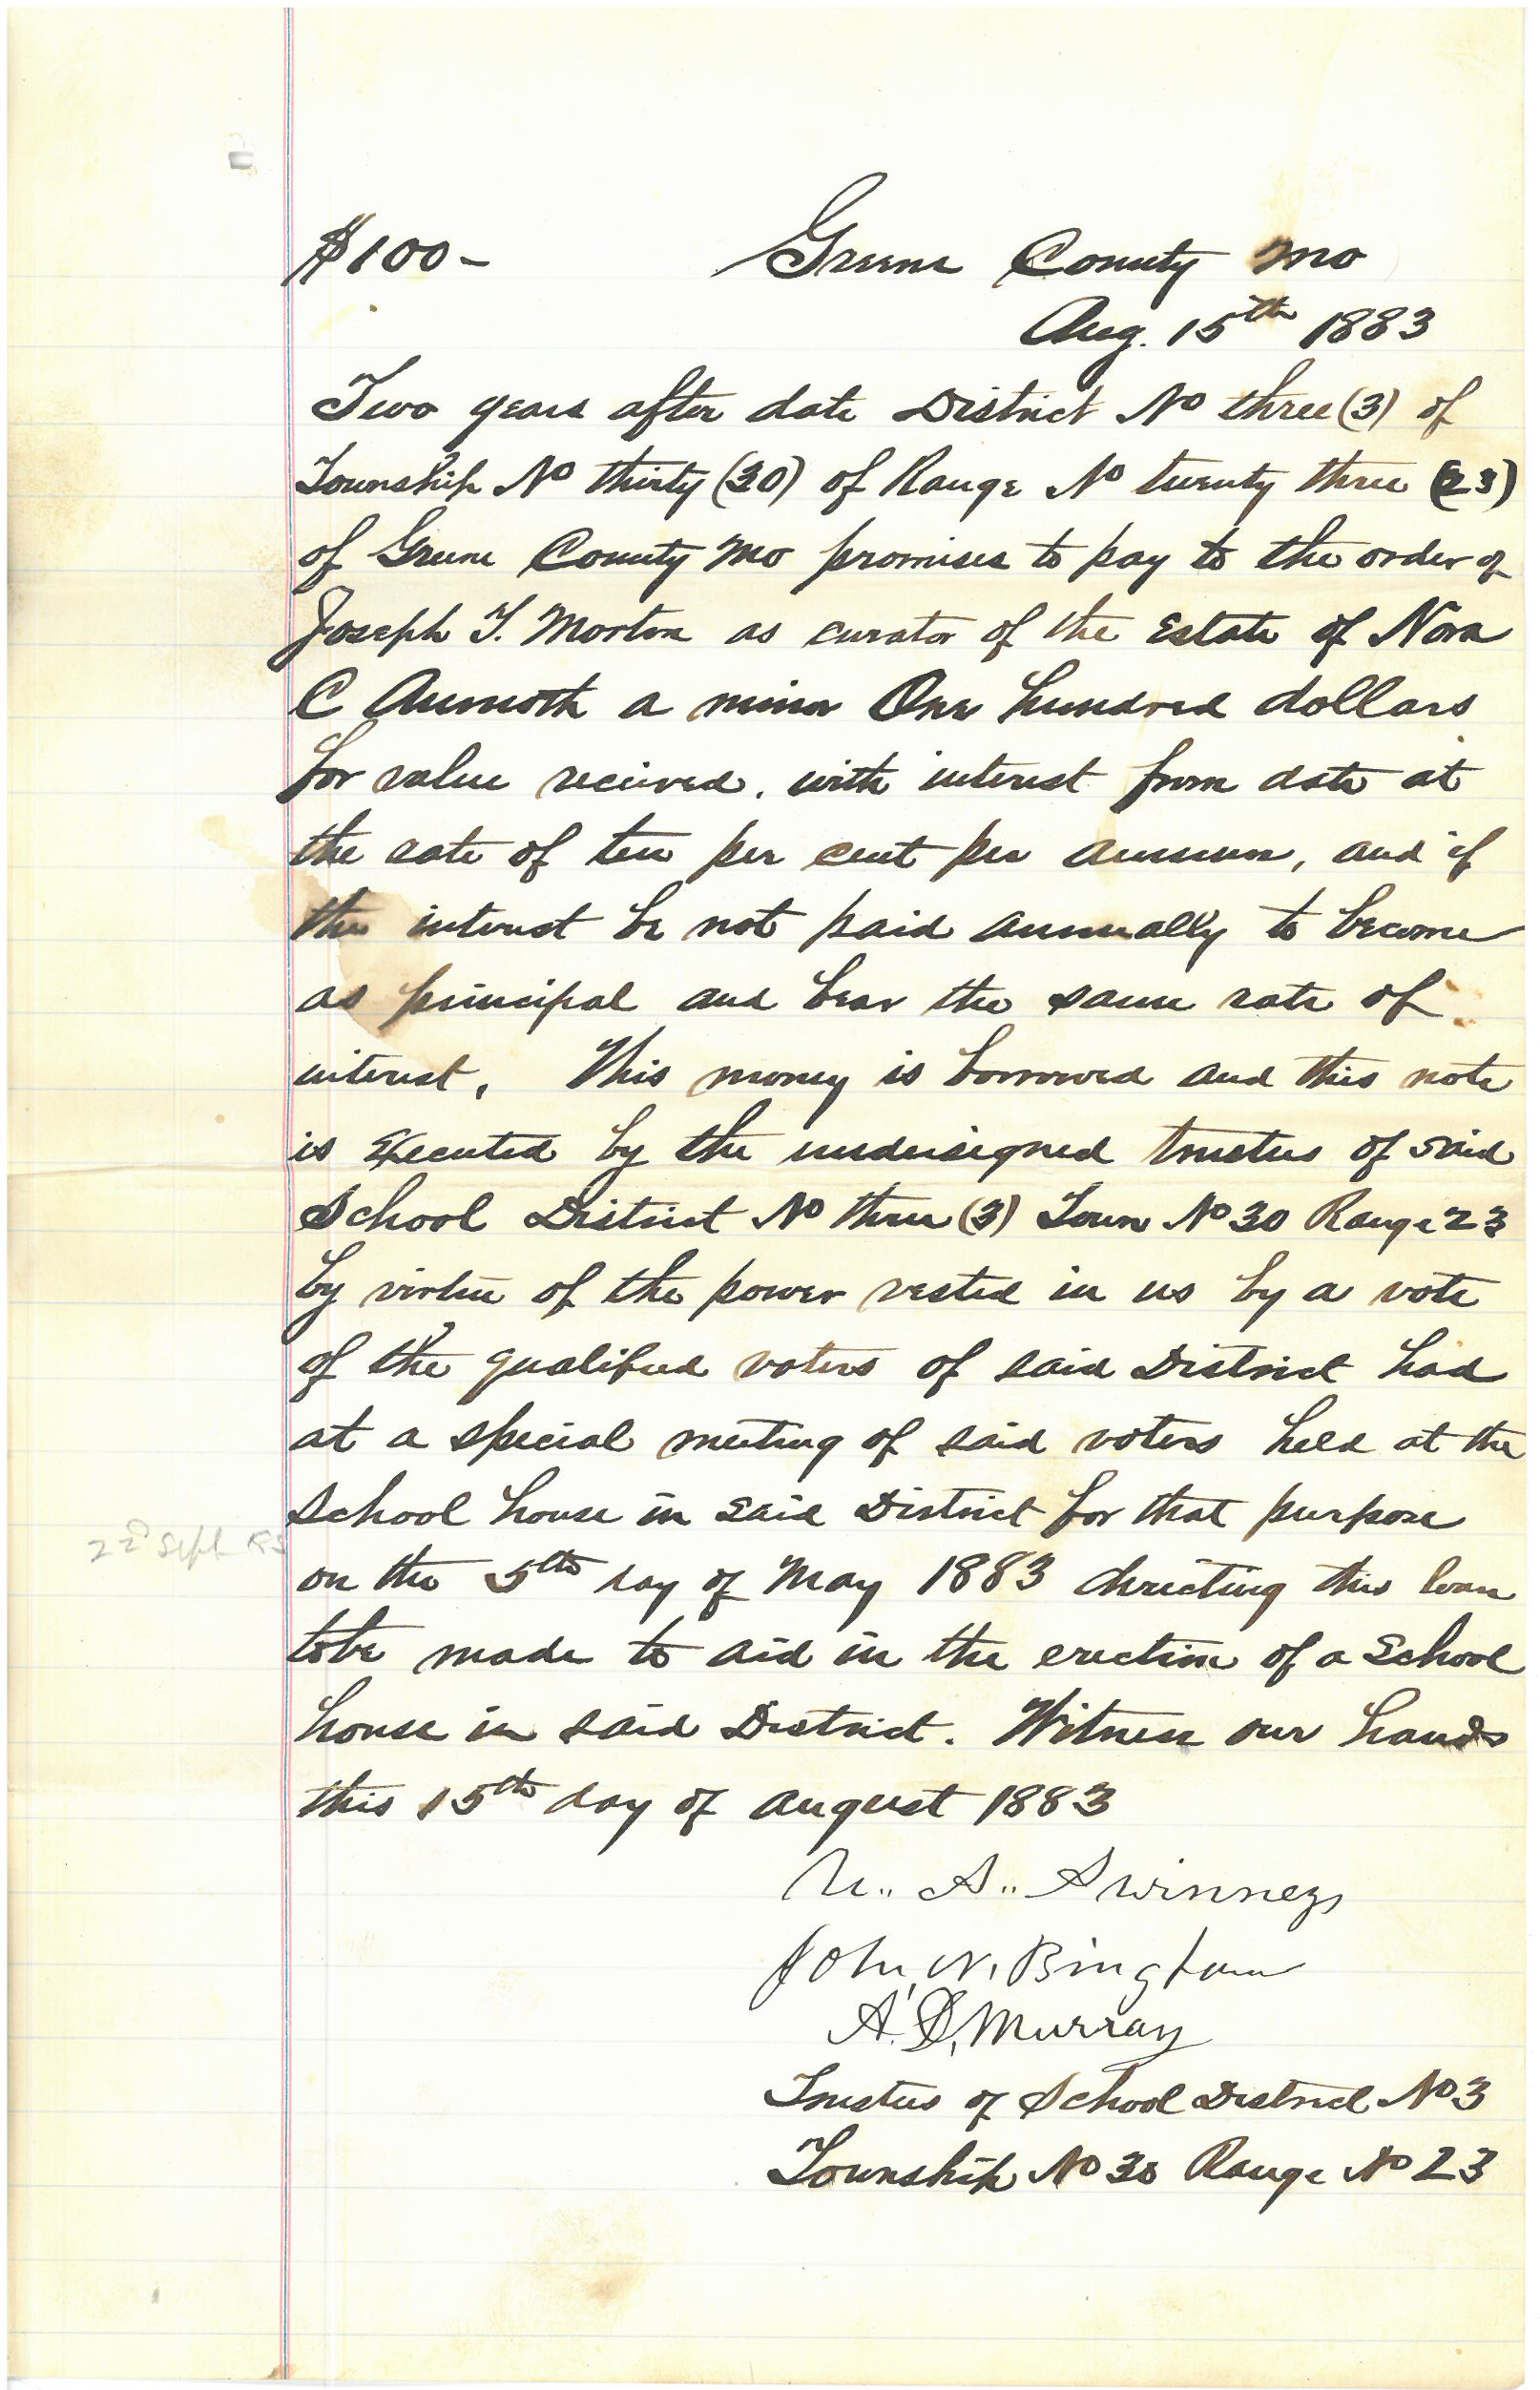 $100- Greene County Mo
Aug. 15th 1883
Two years after date District No three (3) of
Township No thirty (30) of Range No twenty three (23)
of Greene County Mo promises to pay to the order of
Joseph T. Morton as curator of the Estate of Nora
C a minor One hundred dollars
for value received. with interest from date at
the rate of ten per cent per annum, and if
the interest be not paid annually to become
as principal and bear the same rate of
interest. This money is borrowed and this note
is Executed by the undersigned trustees of said
School District No three (3) Town No 30 Range 23
by virtue of the power vested in us by a vote
of the qualified voters of said District had
at a special meeting of said voters held at the
School house in said District for that purpose
2nd Sept
on the 5th day of May 1883 directing this loan
to be made to aid in the erection of a School
house in said District. Witness our hands
this 15th day of August 1883
A.. Swinney
John N. Bingham
A. S. Murray
Trustees of School District No 3
Township No 30 Range No 23